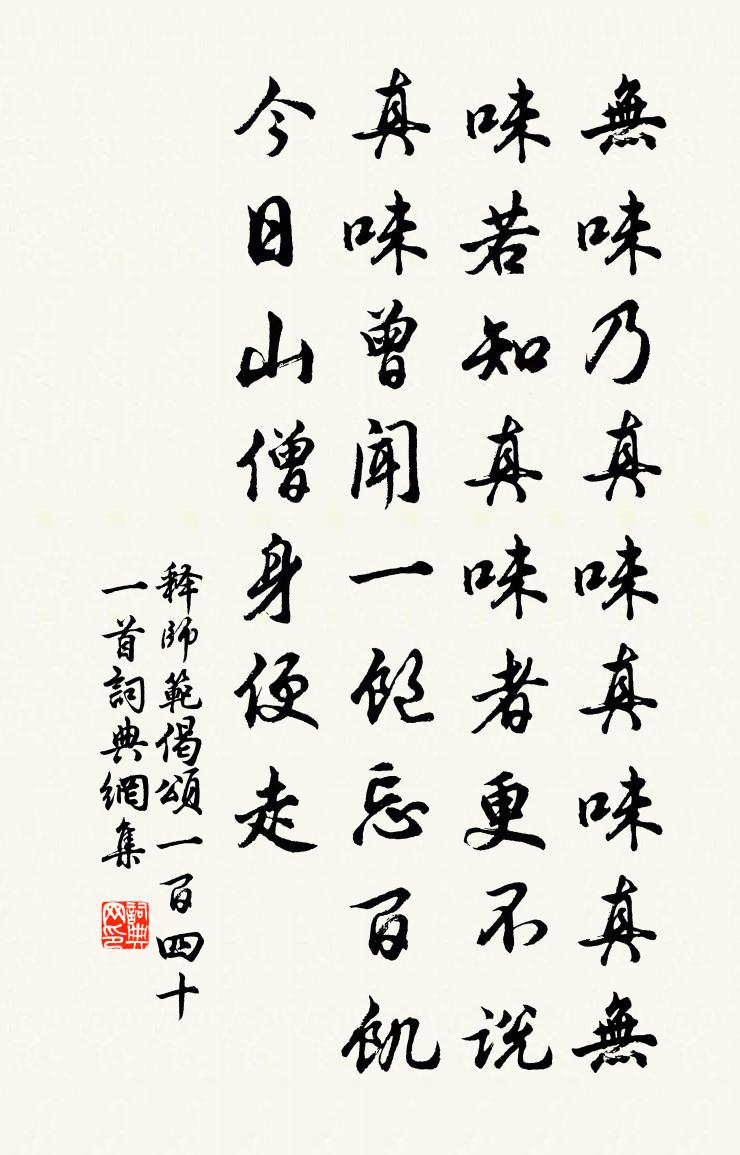 無味乃真味真味真無
味若知真味者更不說
真味曾聞一飽忘百飢
今日山僧身便走
释師範偈頌一百四十
一首詞典網集
詞典网印